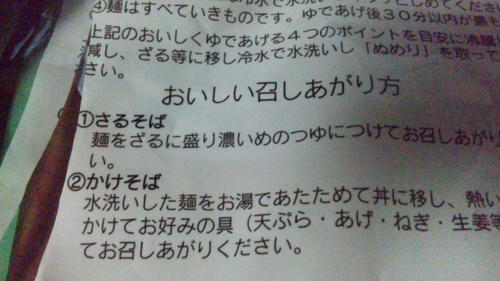 水で水洗い
④麺はすべていきものです。ゆであげ後30分以内が
上記のおいしくゆであげる4つのポイントを目安に沸騰
減し、ざる等に移し冷水で水洗いし「ぬめり」を取って
さい。
おいしい召しあがり方
①さるそば
麺をざるに盛り濃いめのつゆにつけてお召しあがり
い。
②かけそば
水洗いした麺をお湯であたためて丼に移し、熱い
かけてお好みの具（天ぷら・あげ・ねぎ・生姜等
てお召しあがりください。